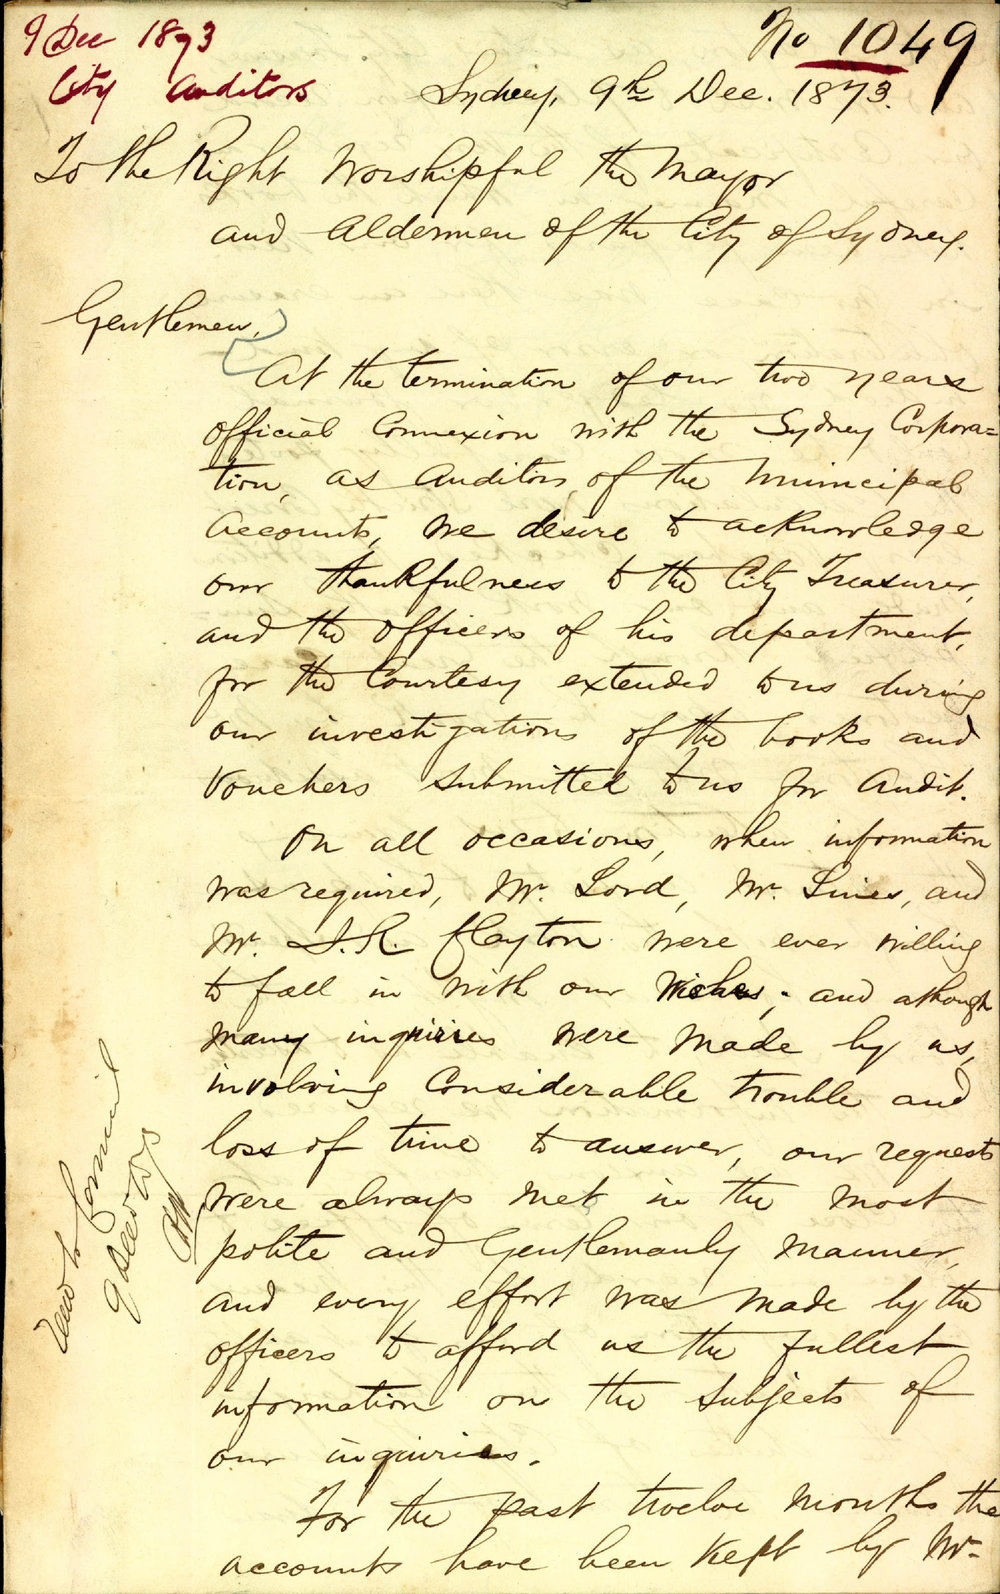 9 Dec 1873
City Auditors
No 1049
Sydney, 9th Dec. 1873.
To the Right Worshipful the Mayor
and Aldermen of the City of Sydney.
Gentlemen,
At the termination of our two years
official Connexion with the Sydney Corpora=
tion, as Auditors of the Municipal
Accounts, we desire to acknowledge
our thankfulness to the City Treasurer,
and the officers of his department,
for the Courtesy extended to us during
our investigations of the books and
Vouchers submitted to us for Audit.
On all occasions, when information
was required, Mr. Lord, Mr. Lines, and
Mr. J. R. Clayton were ever willing
to fall in with our wishes; and although
many inquiries were made by us,
involving Considerable trouble and
loss of time to answer, our requests
were always met in the most
polite and Gentlemanly manner,
and every effort was made by the
officers to afford us the fullest
information on the subjects of
our inquiries.
For the past twelve months the
accounts have been kept by Mr.
to Council
9 Dec